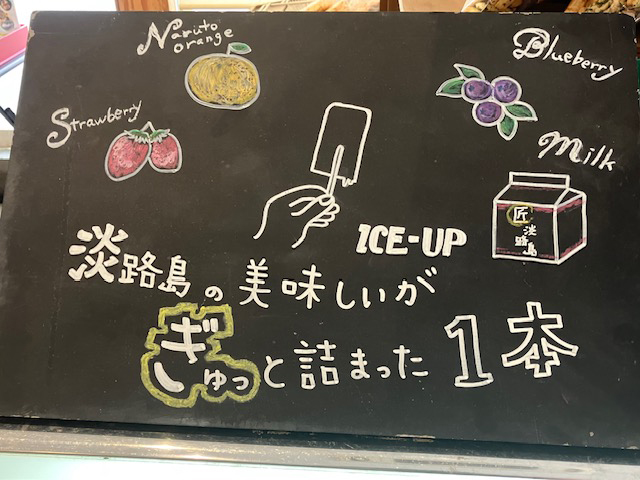 Naruto
orange
Blueberry
Strawberry
Milk
匠
淡
路
島
ICE-UP
淡路島の美味しいが
ぎゅっと詰まった1本